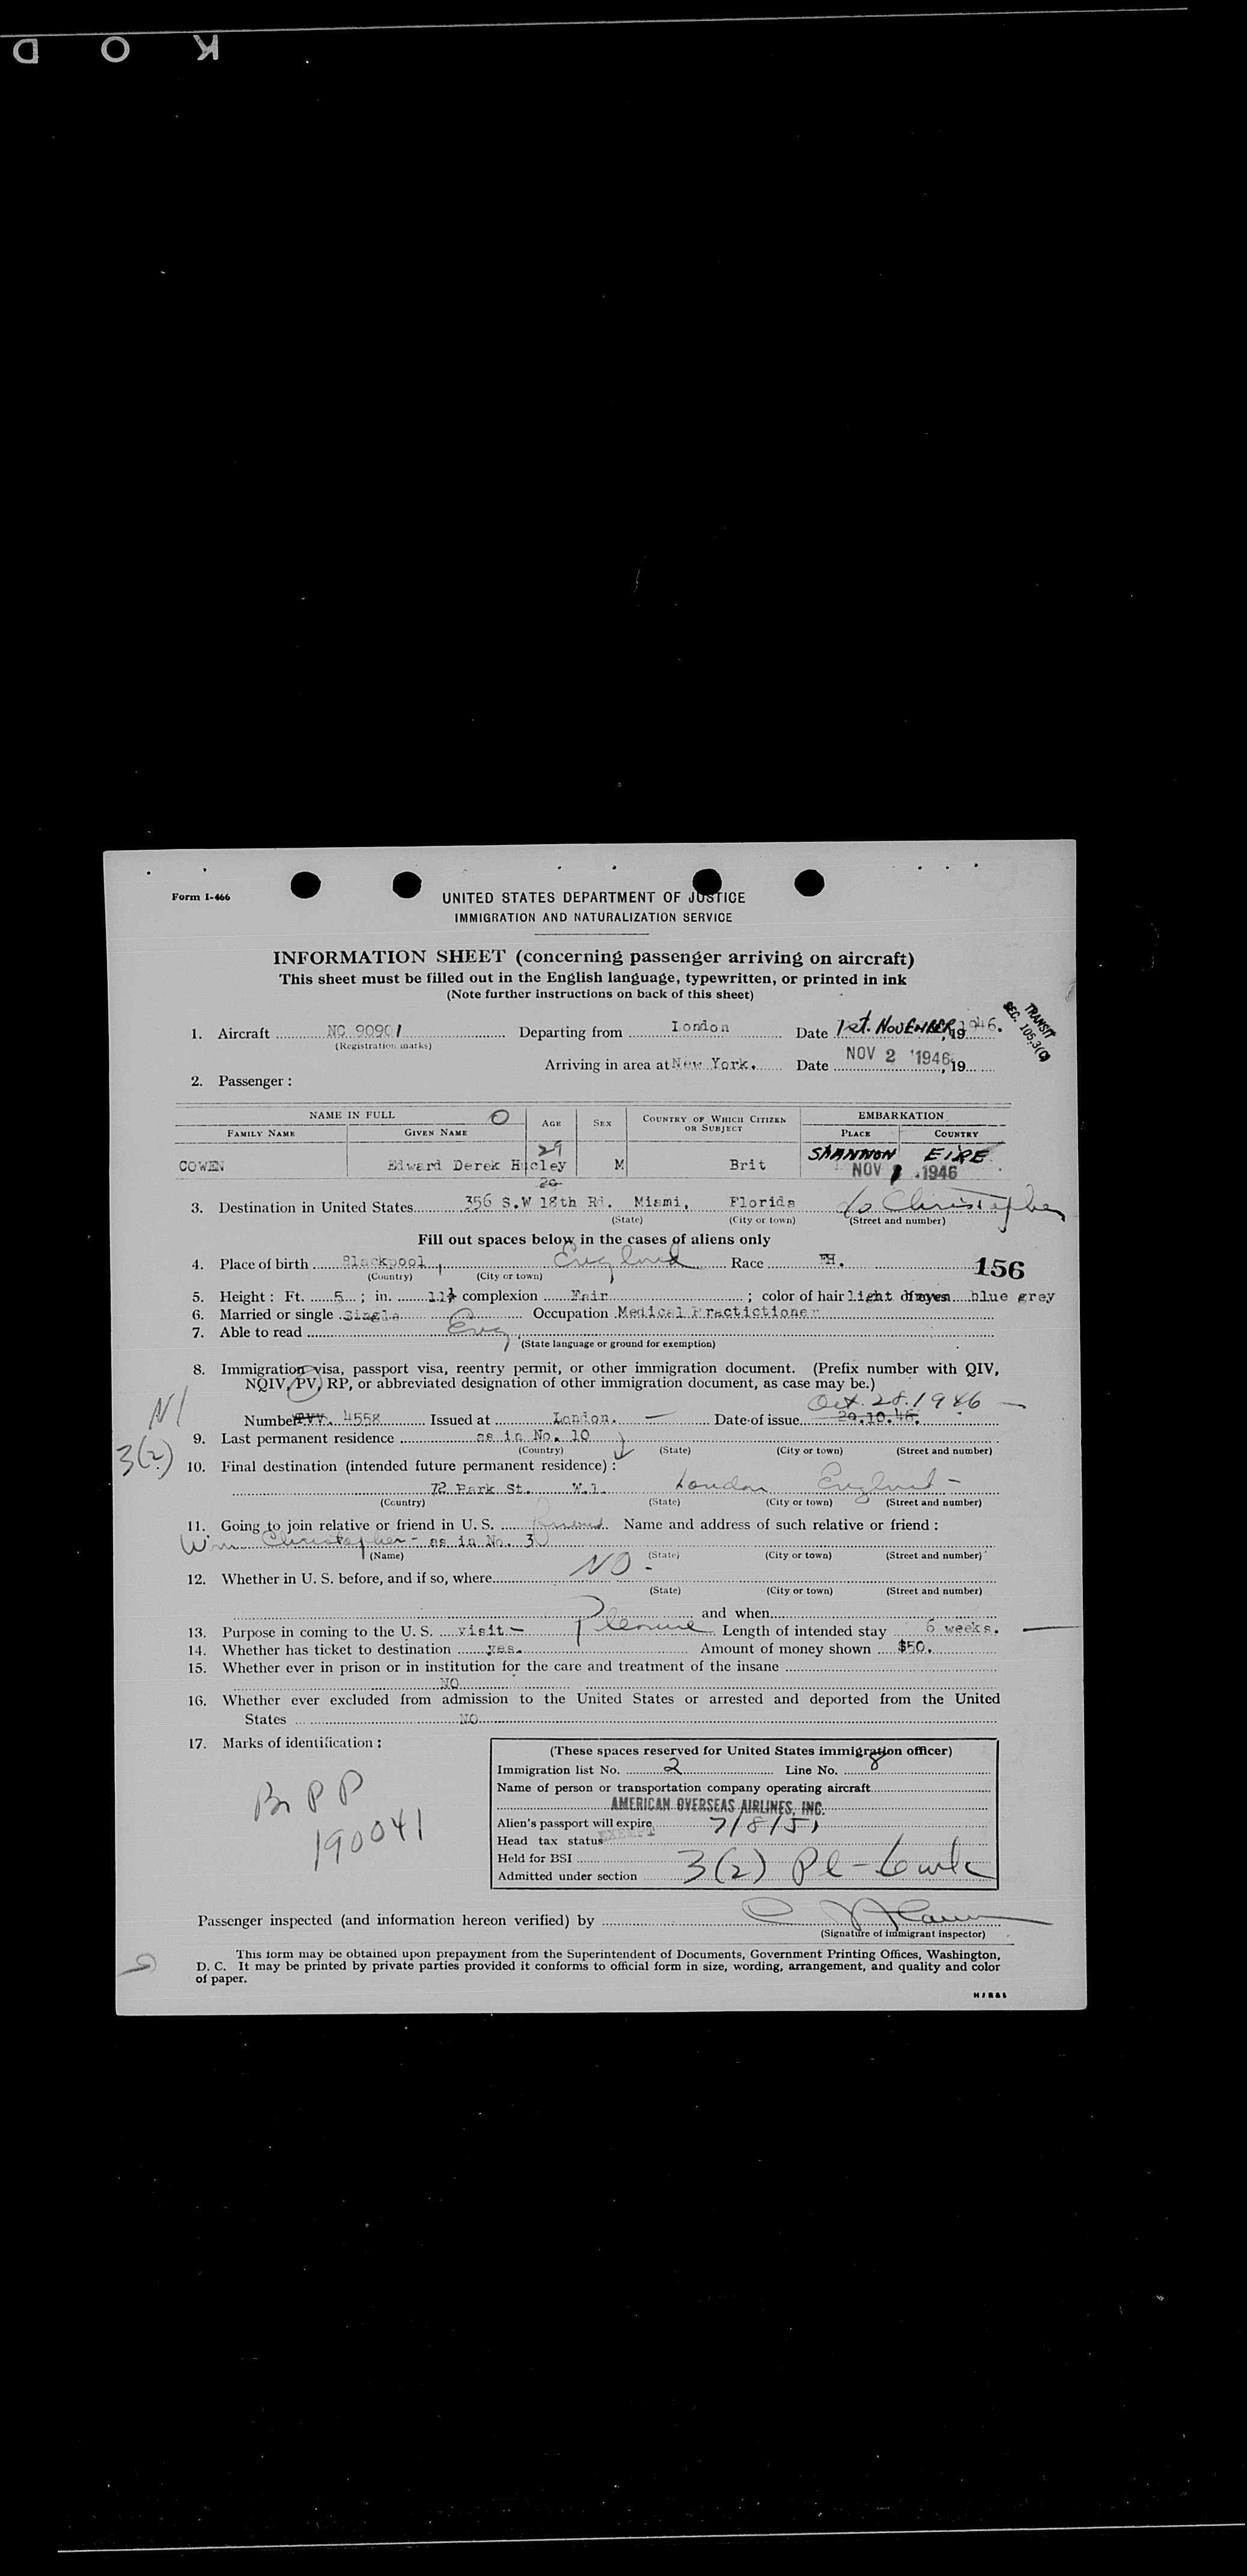 K O D
Form I-466
UNITED STATES DEPARTMENT OF JUSTICE
IMMIGRATION AND NATURALIZATION SERVICE
INFORMATION SHEET (concerning passenger arriving on aircraft)
This sheet must be filled out in the English language, typewritten, or printed in ink
(Note further instructions on back of this sheet)
TRANSIT
SEC. 105.3(C)
1. Aircraft NC 90901 Departing from London Date 1st. NOVEMBER, 1946.
(Registration marks)
Arriving in area at New York. Date NOV 2 1946, 19
2. Passenger :
NAME IN FULL O AGE SEX COUNTRY OF WHICH CITIZEN OR SUBJECT EMBARKATION
FAMILY NAME GIVEN NAME PLACE COUNTRY
29 SHANNON EIRE
COWEN Edward Derek Hucley M Brit NOV 1 1946
3. Destination in United States 356 S.W 18th Rd. Miami, Florida c/o Christopher
(State) (City or town) (Street and number)
Fill out spaces below in the cases of aliens only
4. Place of birth Blackpool, England Race 156
(Country) (City or town)
5. Height : Ft. 5 ; in. 11½ complexion Fair ; color of hair light of eyes blue grey
6. Married or single Single Occupation Medical Practictioner
7. Able to read Eng
(State language or ground for exemption)
8. Immigration visa, passport visa, reentry permit, or other immigration document. (Prefix number with QIV,
NQIV, PV, RP, or abbreviated designation of other immigration document, as case may be.)
N/ Oct. 28. 1946
Number PVV. 4558 Issued at London. Date of issue 29.10.46.
9. Last permanent residence as in No. 10
3(2) (Country) (State) (City or town) (Street and number)
10. Final destination (intended future permanent residence) :
72 Park St. W.1. London England
(Country) (State) (City or town) (Street and number)
11. Going to join relative or friend in U. S. friend Name and address of such relative or friend :
Wm Christopher - as in No. 3
(Name) (State) (City or town) (Street and number)
12. Whether in U. S. before, and if so, where NO -
(State) (City or town) (Street and number)
and when
13. Purpose in coming to the U. S. visit - Pleasure Length of intended stay 6 weeks.
14. Whether has ticket to destination yes. Amount of money shown $50.
15. Whether ever in prison or in institution for the care and treatment of the insane
NO
16. Whether ever excluded from admission to the United States or arrested and deported from the United
States NO
17. Marks of identification :
Br P P
190041
(These spaces reserved for United States immigration officer)
Immigration list No. 2 Line No. 8
Name of person or transportation company operating aircraft
AMERICAN OVERSEAS AIRLINES, INC.
Alien's passport will expire 7/8/51
Head tax status EXEMPT
Held for BSI
Admitted under section 3(2) Pl - 6 wk
Passenger inspected (and information hereon verified) by
(Signature of immigrant inspector)
This form may be obtained upon prepayment from the Superintendent of Documents, Government Printing Offices, Washington,
D. C. It may be printed by private parties provided it conforms to official form in size, wording, arrangement, and quality and color
of paper.